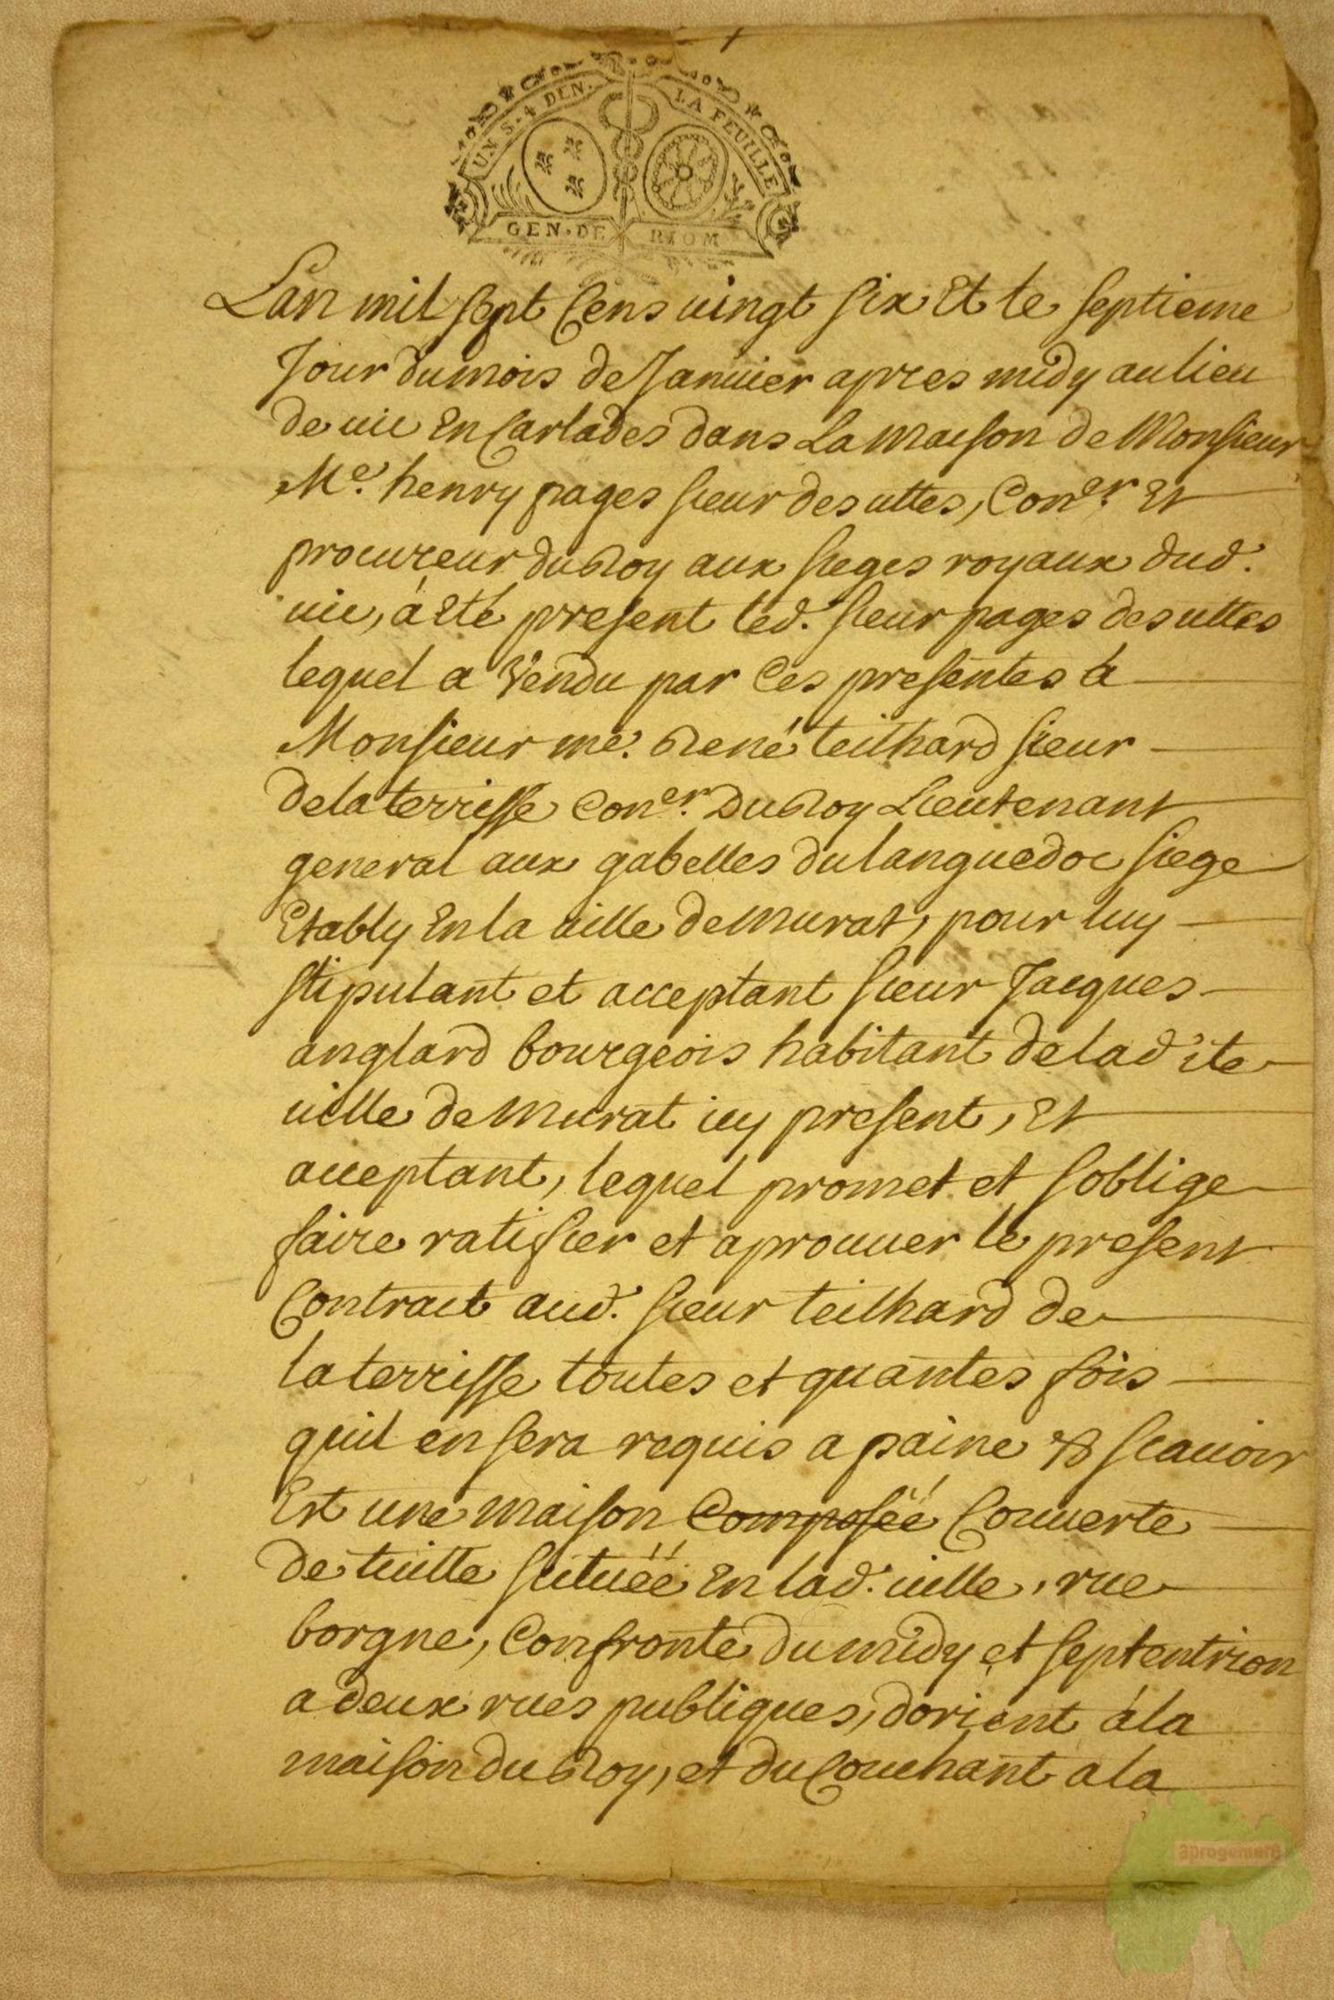 UN S. 4 DEN. LA FEUILLE
GEN. DE RIOM
Lan mil sept Cens vingt six Et le septieme
Jour du mois de Janvier apres midy au lieu
de vic En Carlades dans La maison de Monsieur
Me. henry pages sieur des uttes, Coner. Et
procureur du Roy aux sieges royaux dud.
vic, à Eté present led. sieur pages des uttes
lequel a Vendu par Ces presentes à
Monsieur me. René teilhard sieur
de la terrisse Coner. Du Roy Lieutenant
general aux gabelles du languedoc siege
Etably En la ville de murat, pour luy
stipulant et acceptant sieur Jacques
anglard bourgeois habitant de lad'ite
ville de murat icy present, Et
acceptant, lequel promet et soblige
faire ratiffier et aprouver le present
Contract aud. sieur teilhard de
la terrisse toutes et quantes fois
quil en sera requis a paine & scavoir
Est une maison Composéé Couverte
de tuille scituéé En lad. ville, rue
borgne, Confronte du midy et septentrion
a deux rues publiques, dorient à la
maison du Roy, et du Couchant a la
aprogemere